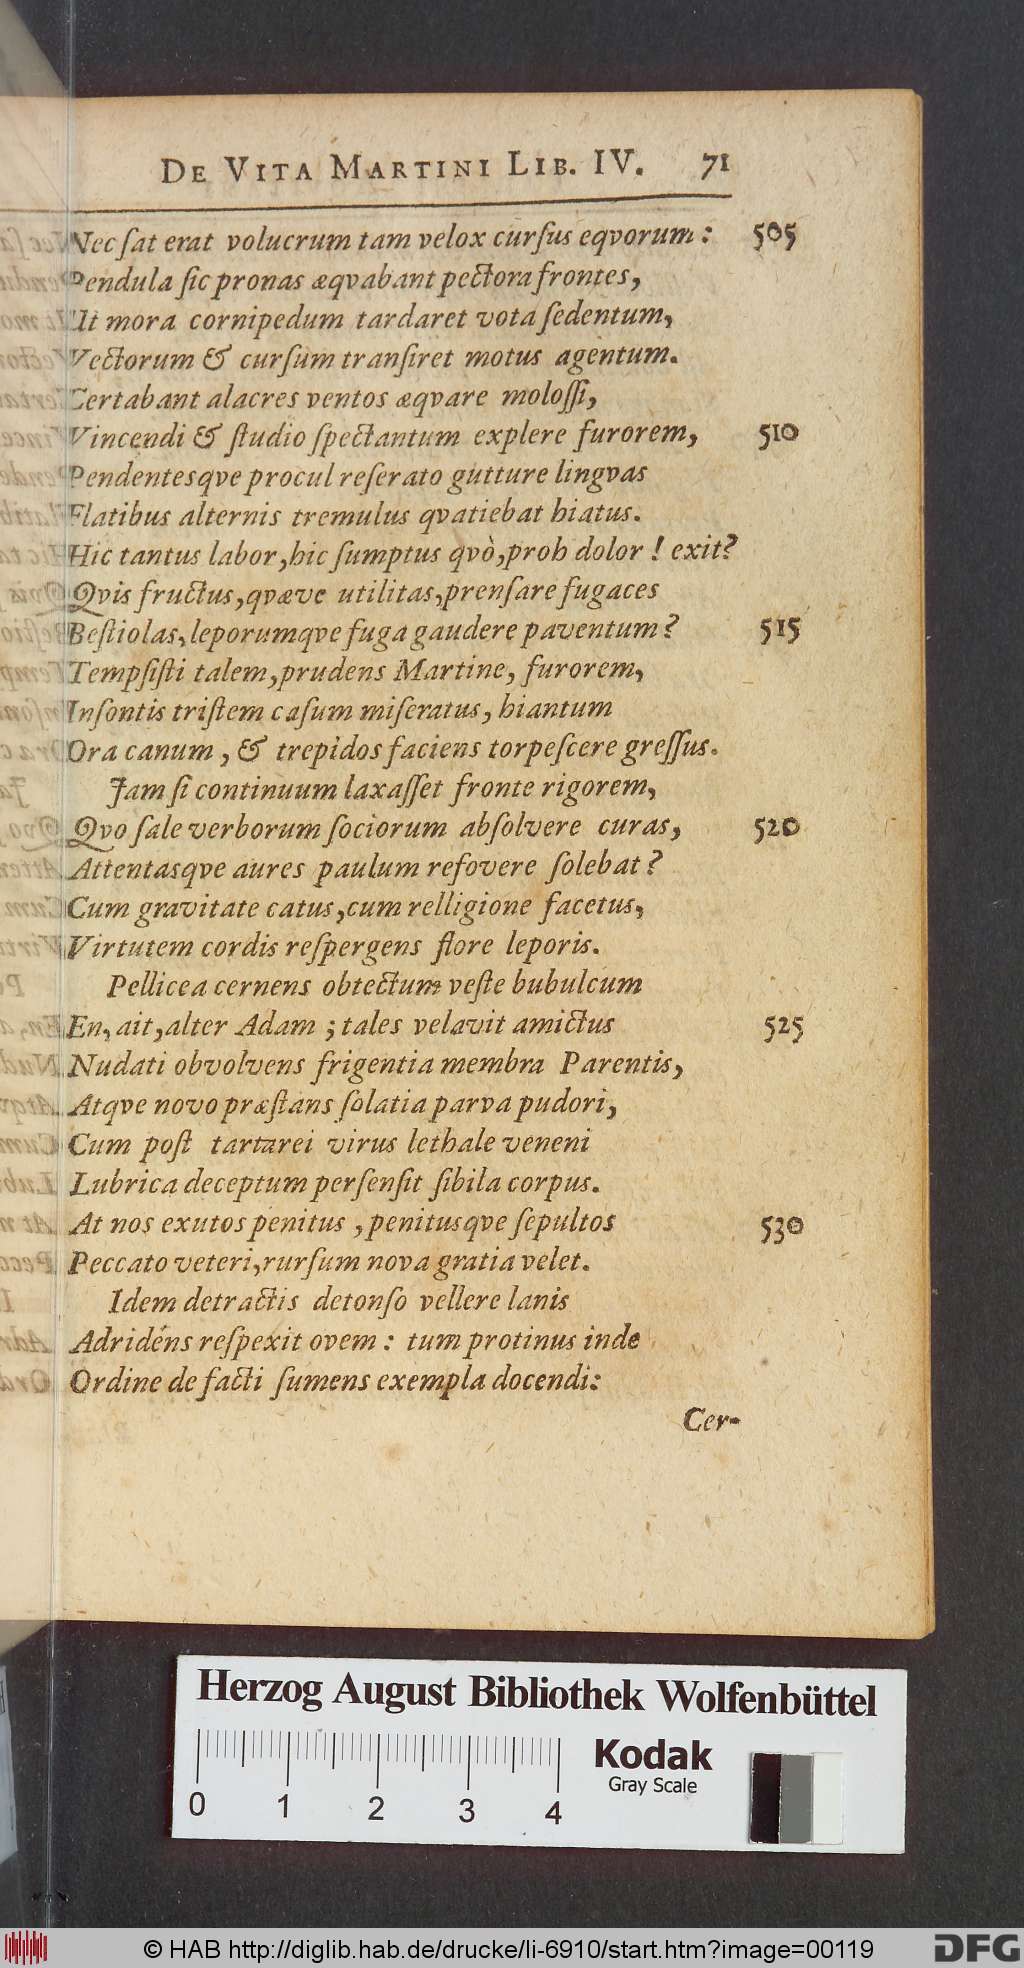 DE VITA MARTINI LIB. IV. 71
Nec ſat erat volucrum tam velox curſus eqvorum: 505
Pendula ſic pronas æqvabant pectora frontes,
Ut mora cornipedum tardaret vota ſedentum,
Vectorum & curſum tranſiret motus agentum.
Certabant alacres ventos æqvare moloſſi,
Vincendi & ſtudio ſpectantum explere furorem, 510
Pendentesqve procul reſerato gutture lingvas
Flatibus alternis tremulus qvatiebat hiatus.
Hic tantus labor, hic ſumptus qvò, proh dolor! exit?
Qvis fructus, qvæve utilitas, prenſare fugaces
Beſtiolas, leporumqve fuga gaudere paventum? 515
Tempſiſti talem, prudens Martine, furorem,
Inſontis triſtem caſum miſeratus, hiantum
Ora canum, & trepidos faciens torpeſcere greſſus.
Jam ſi continuum laxaſſet fronte rigorem,
Qvo ſale verborum ſociorum abſolvere curas, 520
Attentasqve aures paulum refovere ſolebat?
Cum gravitate catus, cum relligione facetus,
Virtutem cordis reſpergens flore leporis.
Pellicea cernens obtectum veſte bubulcum
En, ait, alter Adam; tales velavit amictus 525
Nudati obvolvens frigentia membra Parentis,
Atqve novo præſtans ſolatia parva pudori,
Cum poſt tartarei virus lethale veneni
Lubrica deceptum perſenſit ſibila corpus.
At nos exutos penitus, penitusqve ſepultos 530
Peccato veteri, rurſum nova gratia velet.
Idem detractis detonſo vellere lanis
Adridens reſpexit ovem: tum protinus inde
Ordine de facti ſumens exempla docendi:
Cer-
Herzog August Bibliothek Wolfenbüttel
Kodak
Gray Scale
0 1 2 3 4
© HAB http://diglib.hab.de/drucke/li-6910/start.htm?image=00119
DFG